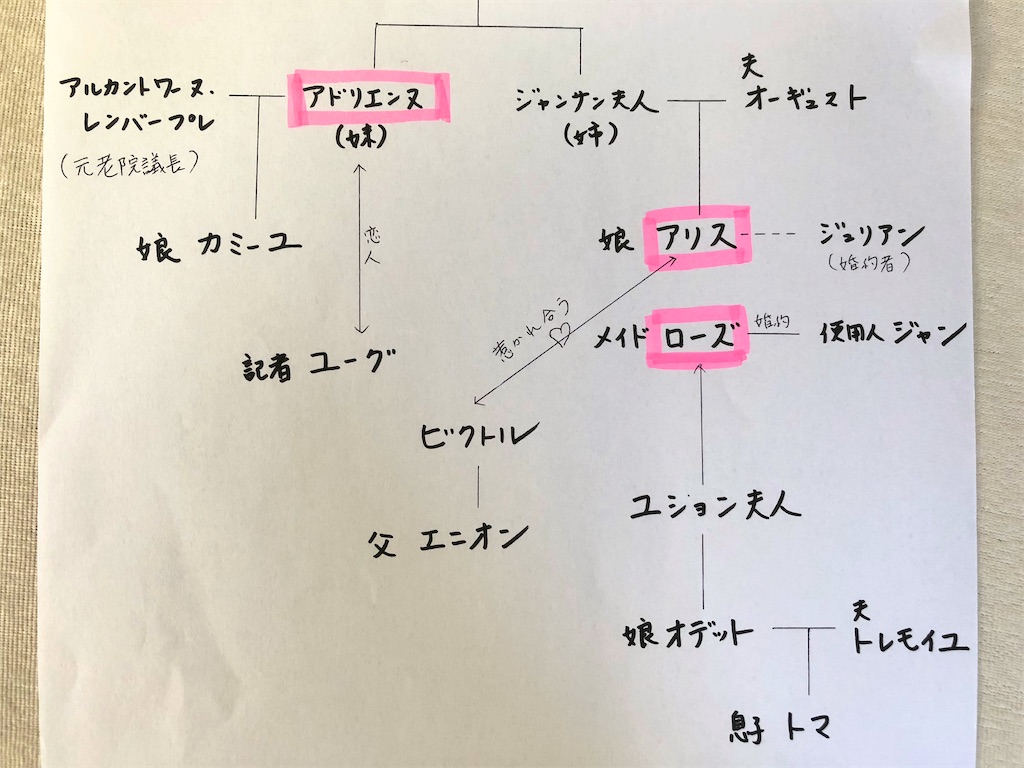 アルカントワーヌ・
レンバープレ
(元老院議長)
アドリエンヌ
(妹)
ジャンサン夫人
(姉)
夫
オーギュスト
娘 カミーユ
恋人
記者 ユーグ
娘 アリス
ジュリアン
(婚約者)
惹かれ合う
メイド ローズ
婚約
使用人 ジャン
ビクトル
父 エニオン
ユジョン夫人
娘 オデット
夫
トレモイユ
息子 トマ